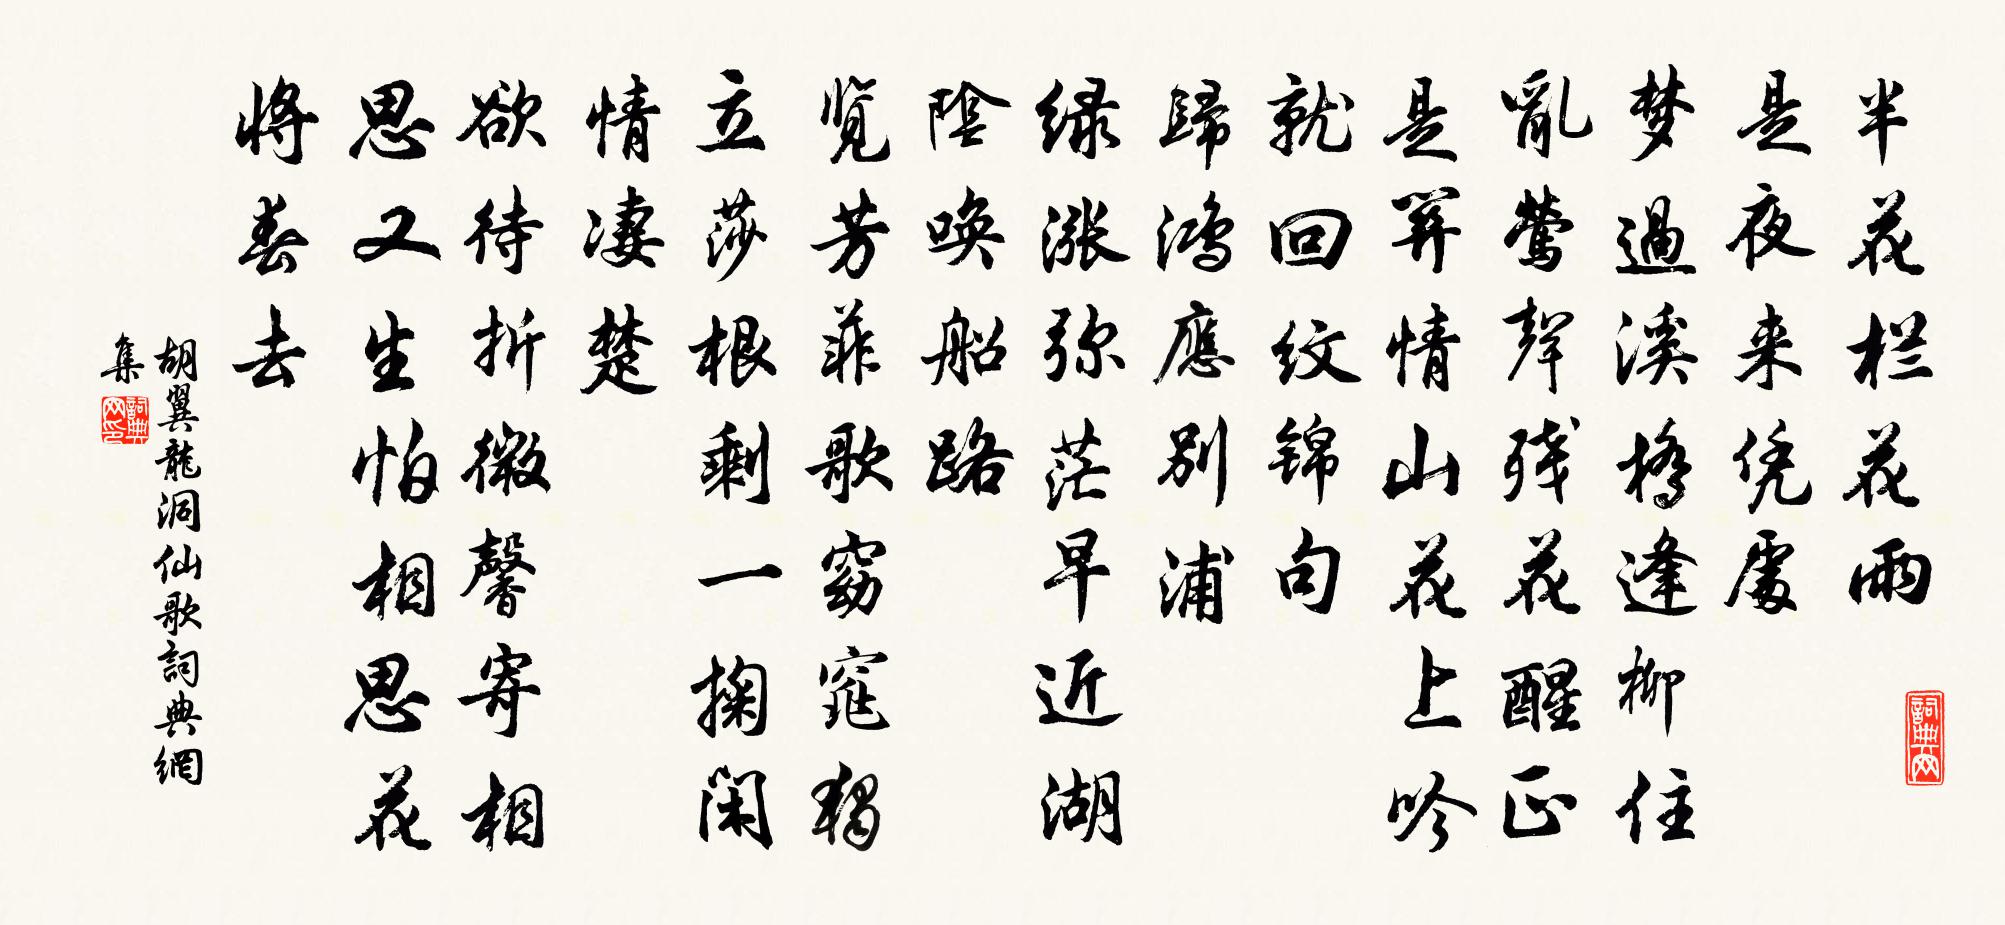 半花栏花雨
是夜来凭處
梦過溪橋逢柳住
亂鶯聲残花醒正
是芽情山花上吟
就回纹锦句
歸鴻應别浦
绿涨弥茫早近湖
陰唤船路
览芳菲歌窈窕独
立莎根剩一掬闲
情凄楚
欲待折微馨寄相
思又生怕相思花
將春去
胡翼龍洞仙歌詞典網
集
詞典网
詞典网印